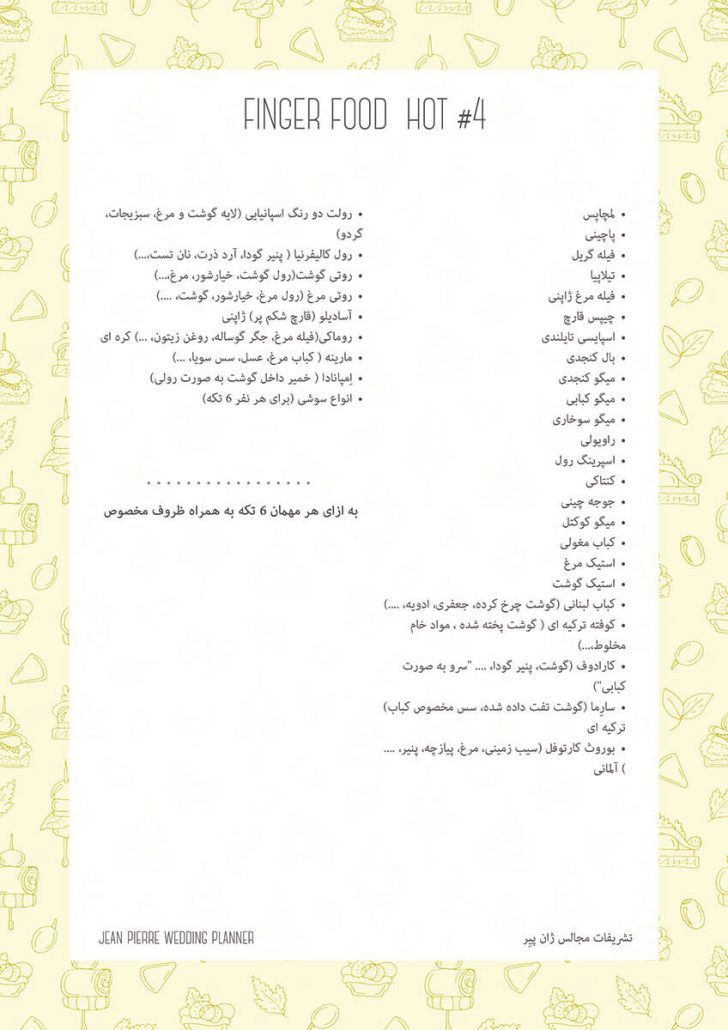 FINGER FOOD HOT #4
• لمچاپس
• پاچینی
• فیله گریل
• تیلاپیا
• فیله مرغ ژاپنی
• چیپس قارچ
• اسپایسی تایلندی
• بال کنجدی
• میگو کنجدی
• میگو کبابی
• میگو سوخاری
• راویولی
• اسپرینگ رول
• کنتاکی
• جوجه چینی
• میگو کوکتل
• کباب مغولی
• استیک مرغ
• استیک گوشت
• کباب لبنانی (گوشت چرخ کرده، جعفری، ادویه، ....)
• کوفته ترکیه ای ( گوشت پخته شده ، مواد خام
مخلوط،...)
• کارادوف (گوشت، پنیر گودا، .... "سرو به صورت
کبابی")
• سارِما (گوشت تفت داده شده، سس مخصوص کباب)
ترکیه ای
• بوروث کارتوفل (سیب زمینی، مرغ، پیازچه، پنیر، ....
) آلمانی
• رولت دو رنگ اسپانیایی (لایه گوشت و مرغ، سبزیجات،
گردو)
• رول کالیفرنیا ( پنیر گودا، آرد ذرت، نان تست،...)
• روتی گوشت(رول گوشت، خیارشور، مرغ،...)
• روتی مرغ (رول مرغ، خیارشور، گوشت، ....)
• آسادیلو (قارچ شکم پر) ژاپنی
• روماکی(فیله مرغ، جگر گوساله، روغن زیتون، ...) کره ای
• مارینه ( کباب مرغ، عسل، سس سویا، ...)
• اِمپانادا ( خمیر داخل گوشت به صورت رولی)
• انواع سوشی (برای هر نفر 6 تکه)
به ازای هر مهمان 6 تکه به همراه ظروف مخصوص
JEAN PIERRE WEDDING PLANNER
تشریفات مجالس ژان پیِر